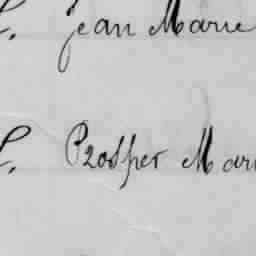 Jean Marie
Prosper Mari